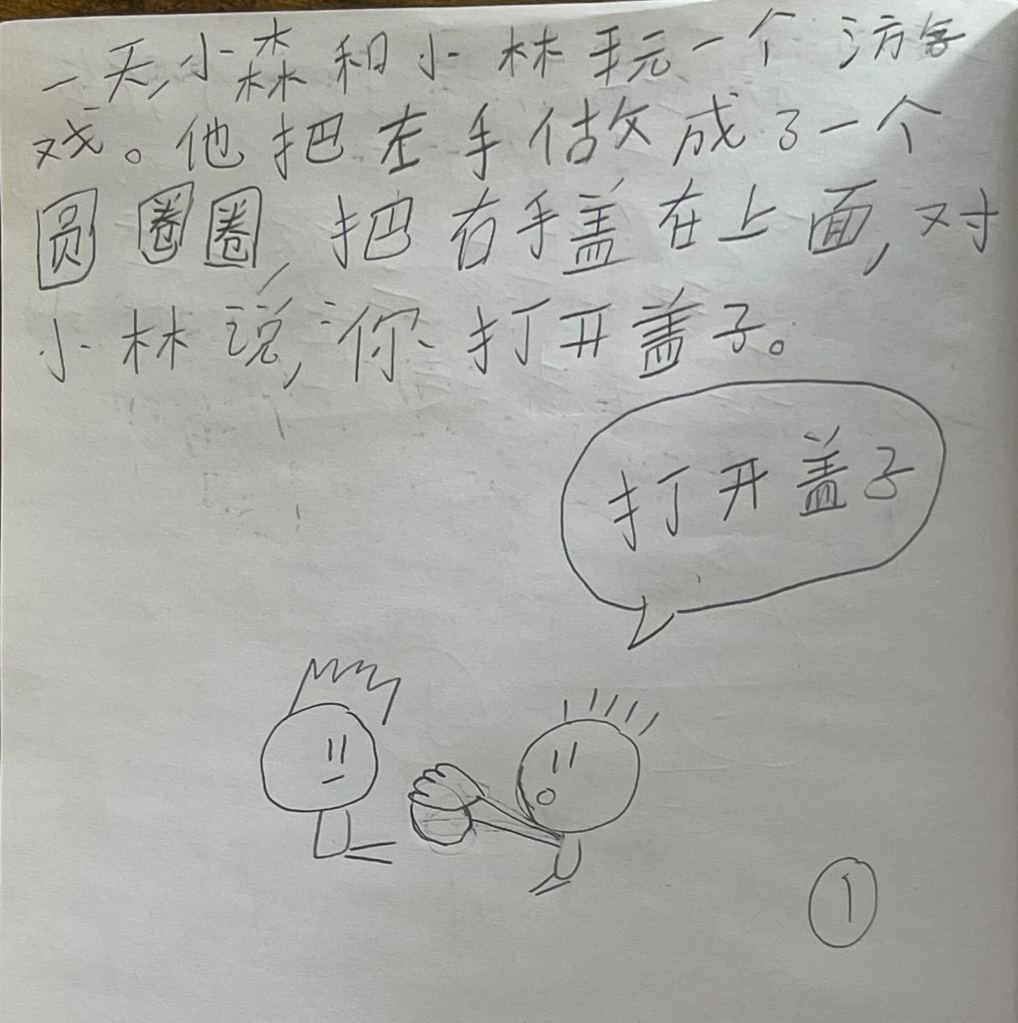 一天,小森和小林玩一个游
戏。他把左手做成了一个
圆圈圈,把右手盖在上面,对
小林说,你打开盖子。
打开盖子
1